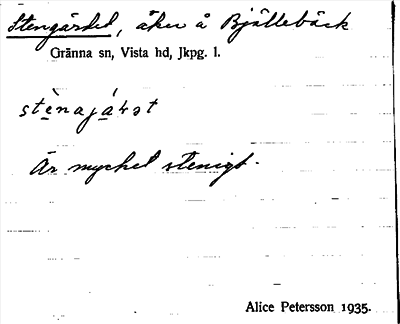 Stengärdet, åker å Bjällebäck
Gränna sn, Vista hd, Jkpg. l.
stènajá4ət
Är mycket stenigt.
Alice Petersson 1935.